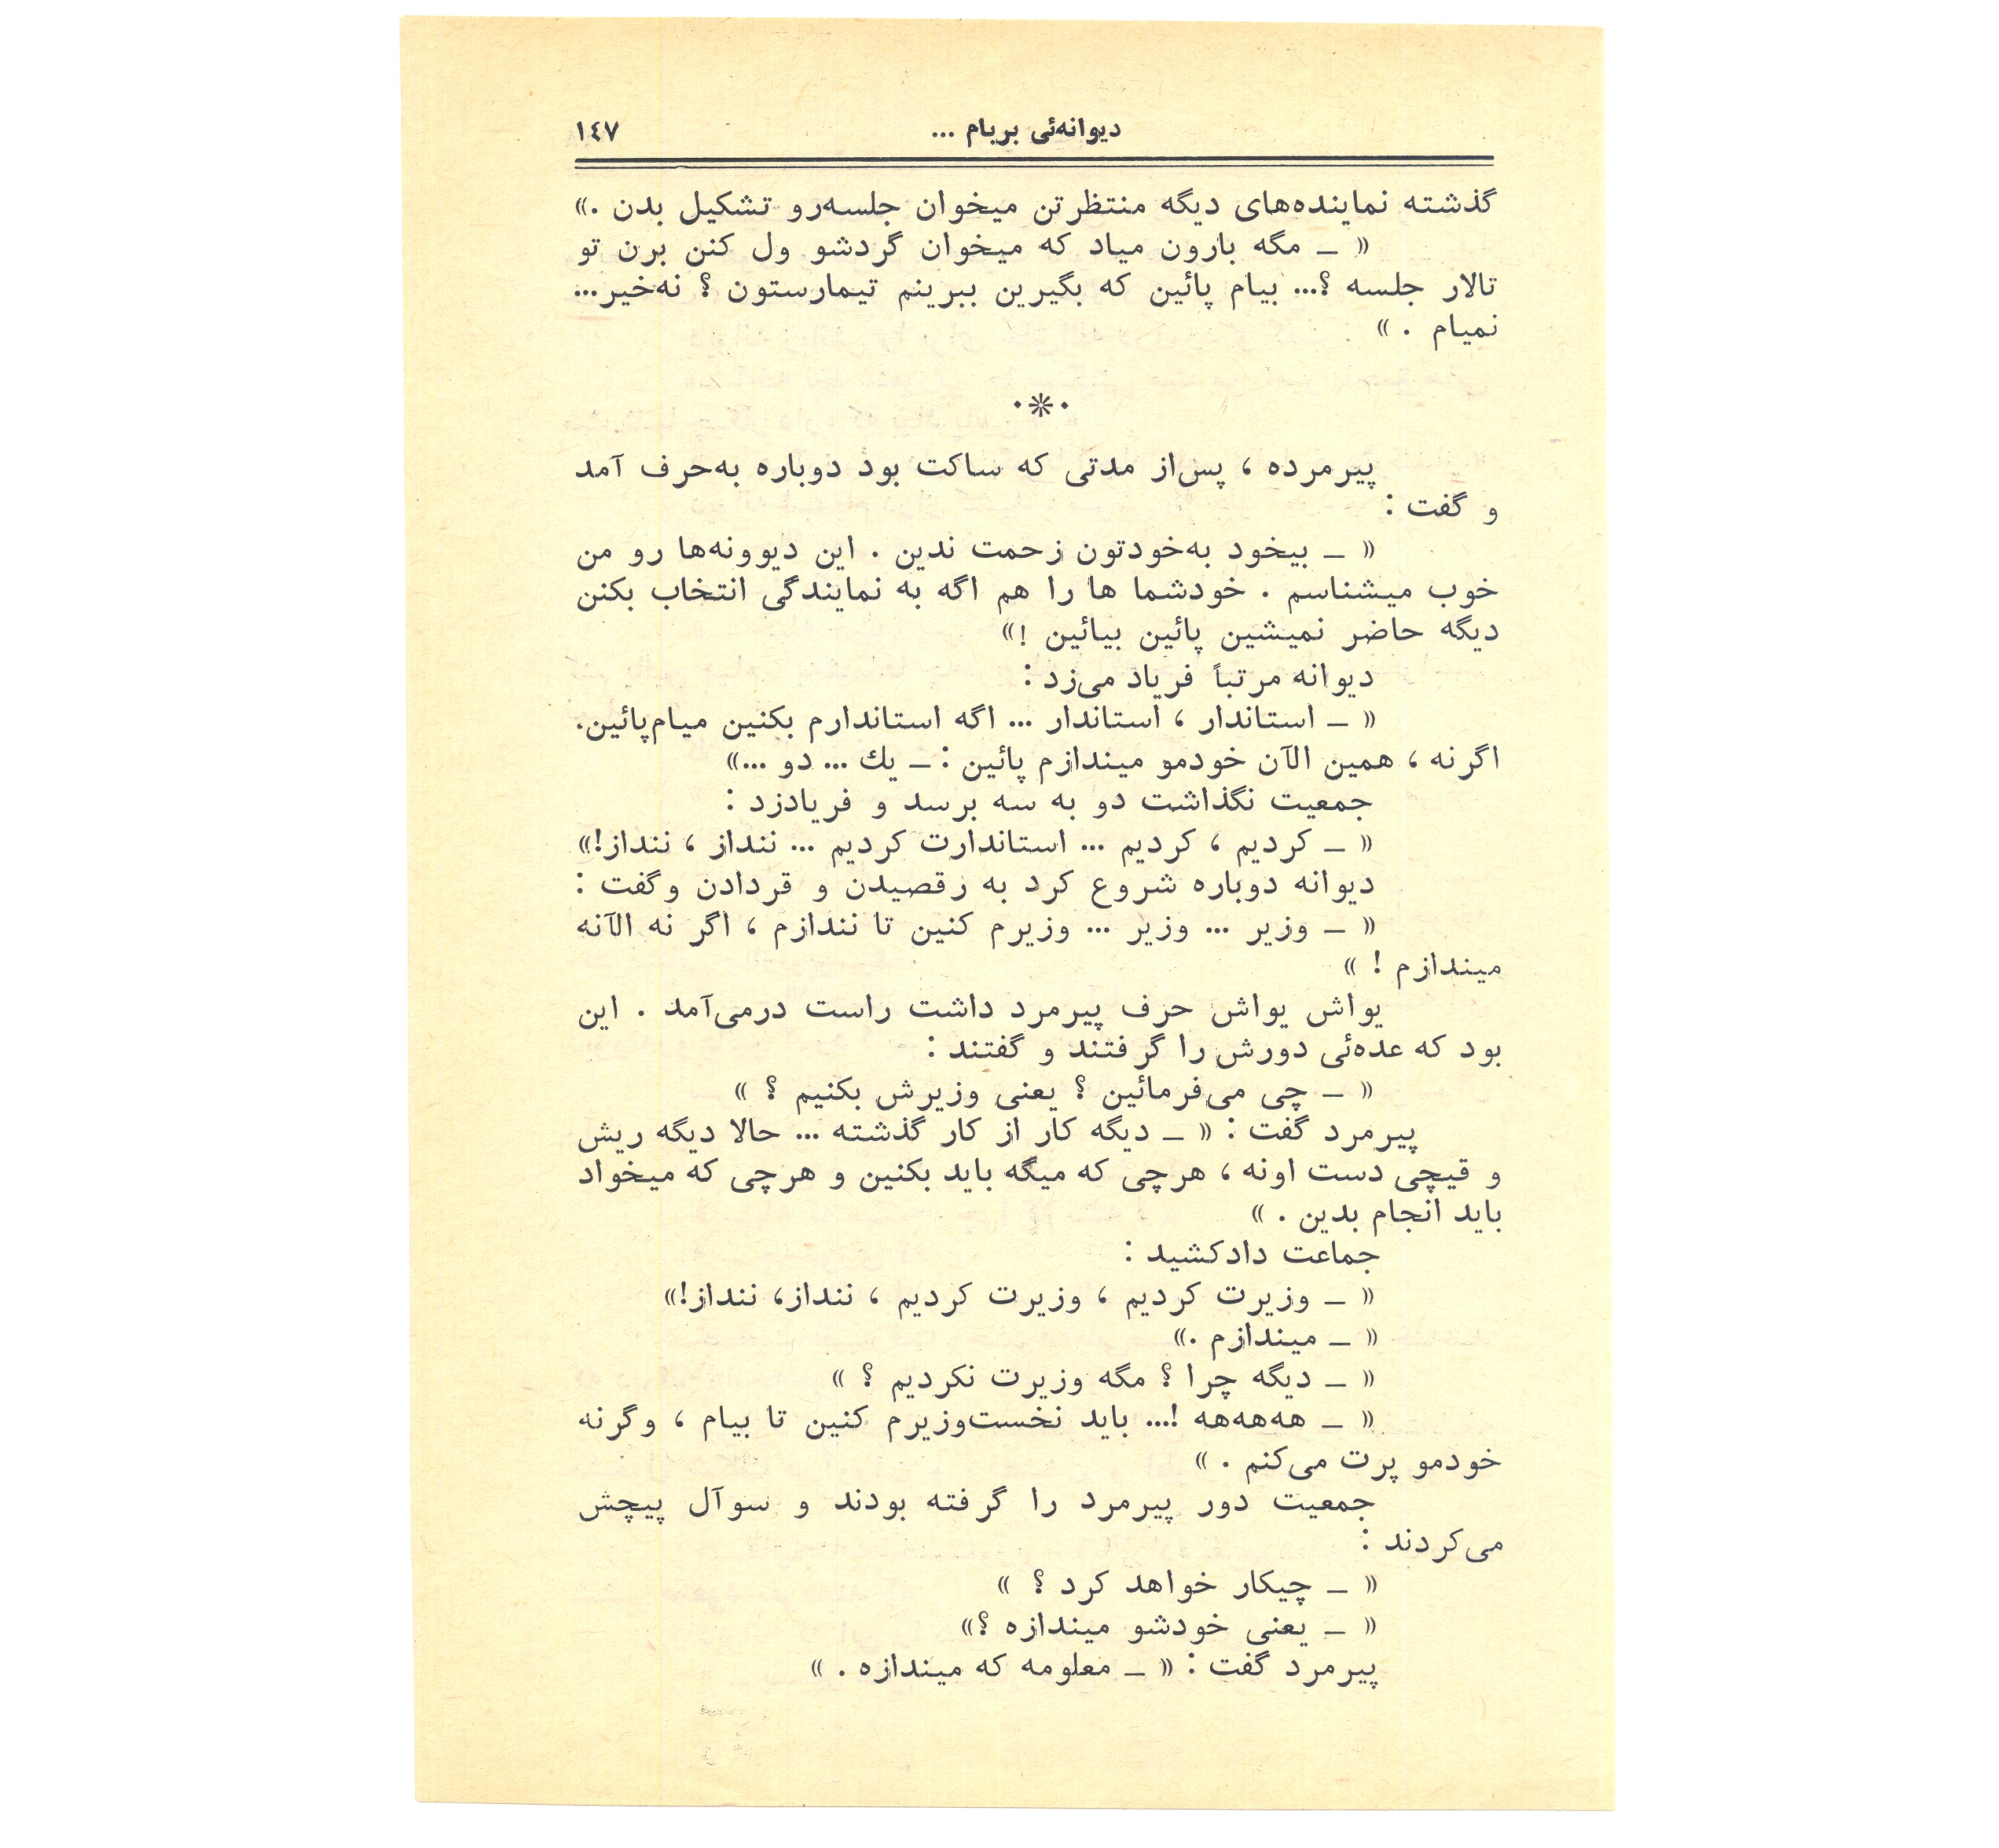 دیوانه‌ئی بربام ... ١٤٧
گذشته نماینده‌های دیگه منتظرتن میخوان جلسه‌رو تشکیل بدن .»
« ــ مگه بارون میاد که میخوان گردشو ول کنن برن تو
تالار جلسه ؟... بیام پائین که بگیرین ببرینم تیمارستون ؟ نه‌خیر...
نمیام . »
·※·
پیرمرده ، پس‌از مدتی که ساکت بود دوباره به‌حرف آمد
و گفت :
« ــ بیخود به‌خودتون زحمت ندین . این دیوونه‌ها رو من
خوب میشناسم . خودشما ها را هم اگه به نمایندگی انتخاب بکنن
دیگه حاضر نمیشین پائین بیائین !»
دیوانه مرتباً فریاد می‌زد :
« ــ استاندار ، استاندار ... اگه استاندارم بکنین میام‌پائین.
اگرنه ، همین الآن خودمو میندازم پائین : ــ یك ... دو ...»
جمعیت نگذاشت دو به سه برسد و فریادزد :
« ــ کردیم ، کردیم ... استاندارت کردیم ... ننداز ، ننداز!»
دیوانه دوباره شروع کرد به رقصیدن و قردادن وگفت :
« ــ وزیر ... وزیر ... وزیرم کنین تا نندازم ، اگر نه الآنه
میندازم ! »
یواش یواش حرف پیرمرد داشت راست درمی‌آمد . این
بود که عده‌ئی دورش را گرفتند و گفتند :
« ــ چی می‌فرمائین ؟ یعنی وزیرش بکنیم ؟ »
پیرمرد گفت : « ــ دیگه کار از کار گذشته ... حالا دیگه ریش
و قیچی دست اونه ، هرچی که میگه باید بکنین و هرچی که میخواد
باید انجام بدین . »
جماعت دادکشید :
« ــ وزیرت کردیم ، وزیرت کردیم ، ننداز، ننداز!»
« ــ میندازم .»
« ــ دیگه چرا ؟ مگه وزیرت نکردیم ؟ »
« ــ هه‌هه‌هه !... باید نخست‌وزیرم کنین تا بیام ، وگرنه
خودمو پرت می‌کنم . »
جمعیت دور پیرمرد را گرفته بودند و سوآل پیچش
می‌کردند :
« ــ چیکار خواهد کرد ؟ »
« ــ یعنی خودشو میندازه ؟»
پیرمرد گفت : « ــ معلومه که میندازه . »